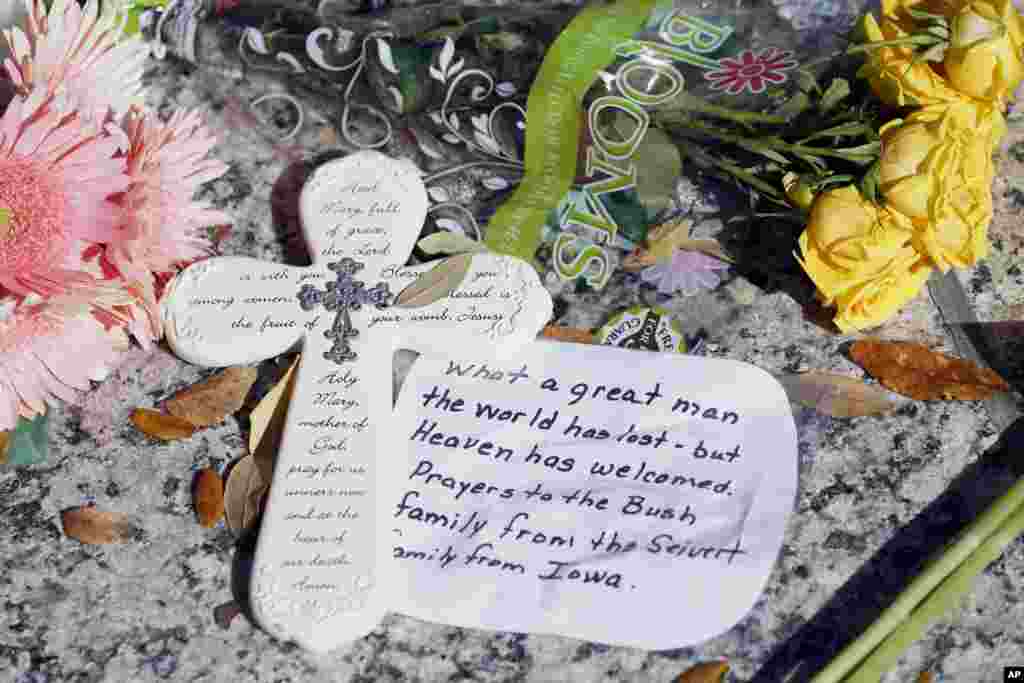 BLOOMS
Hail
Mary, full
of grace,
the Lord
is with you. Blessed you
among women, blessed is
the fruit of your womb, Jesus.
Holy
Mary,
mother of
God,
pray for us
sinners now
and at the
hour of
our death.
Amen.
What a great man
the world has lost - but
Heaven has welcomed.
Prayers to the Bush
family from the Seivert
family from Iowa.
AP